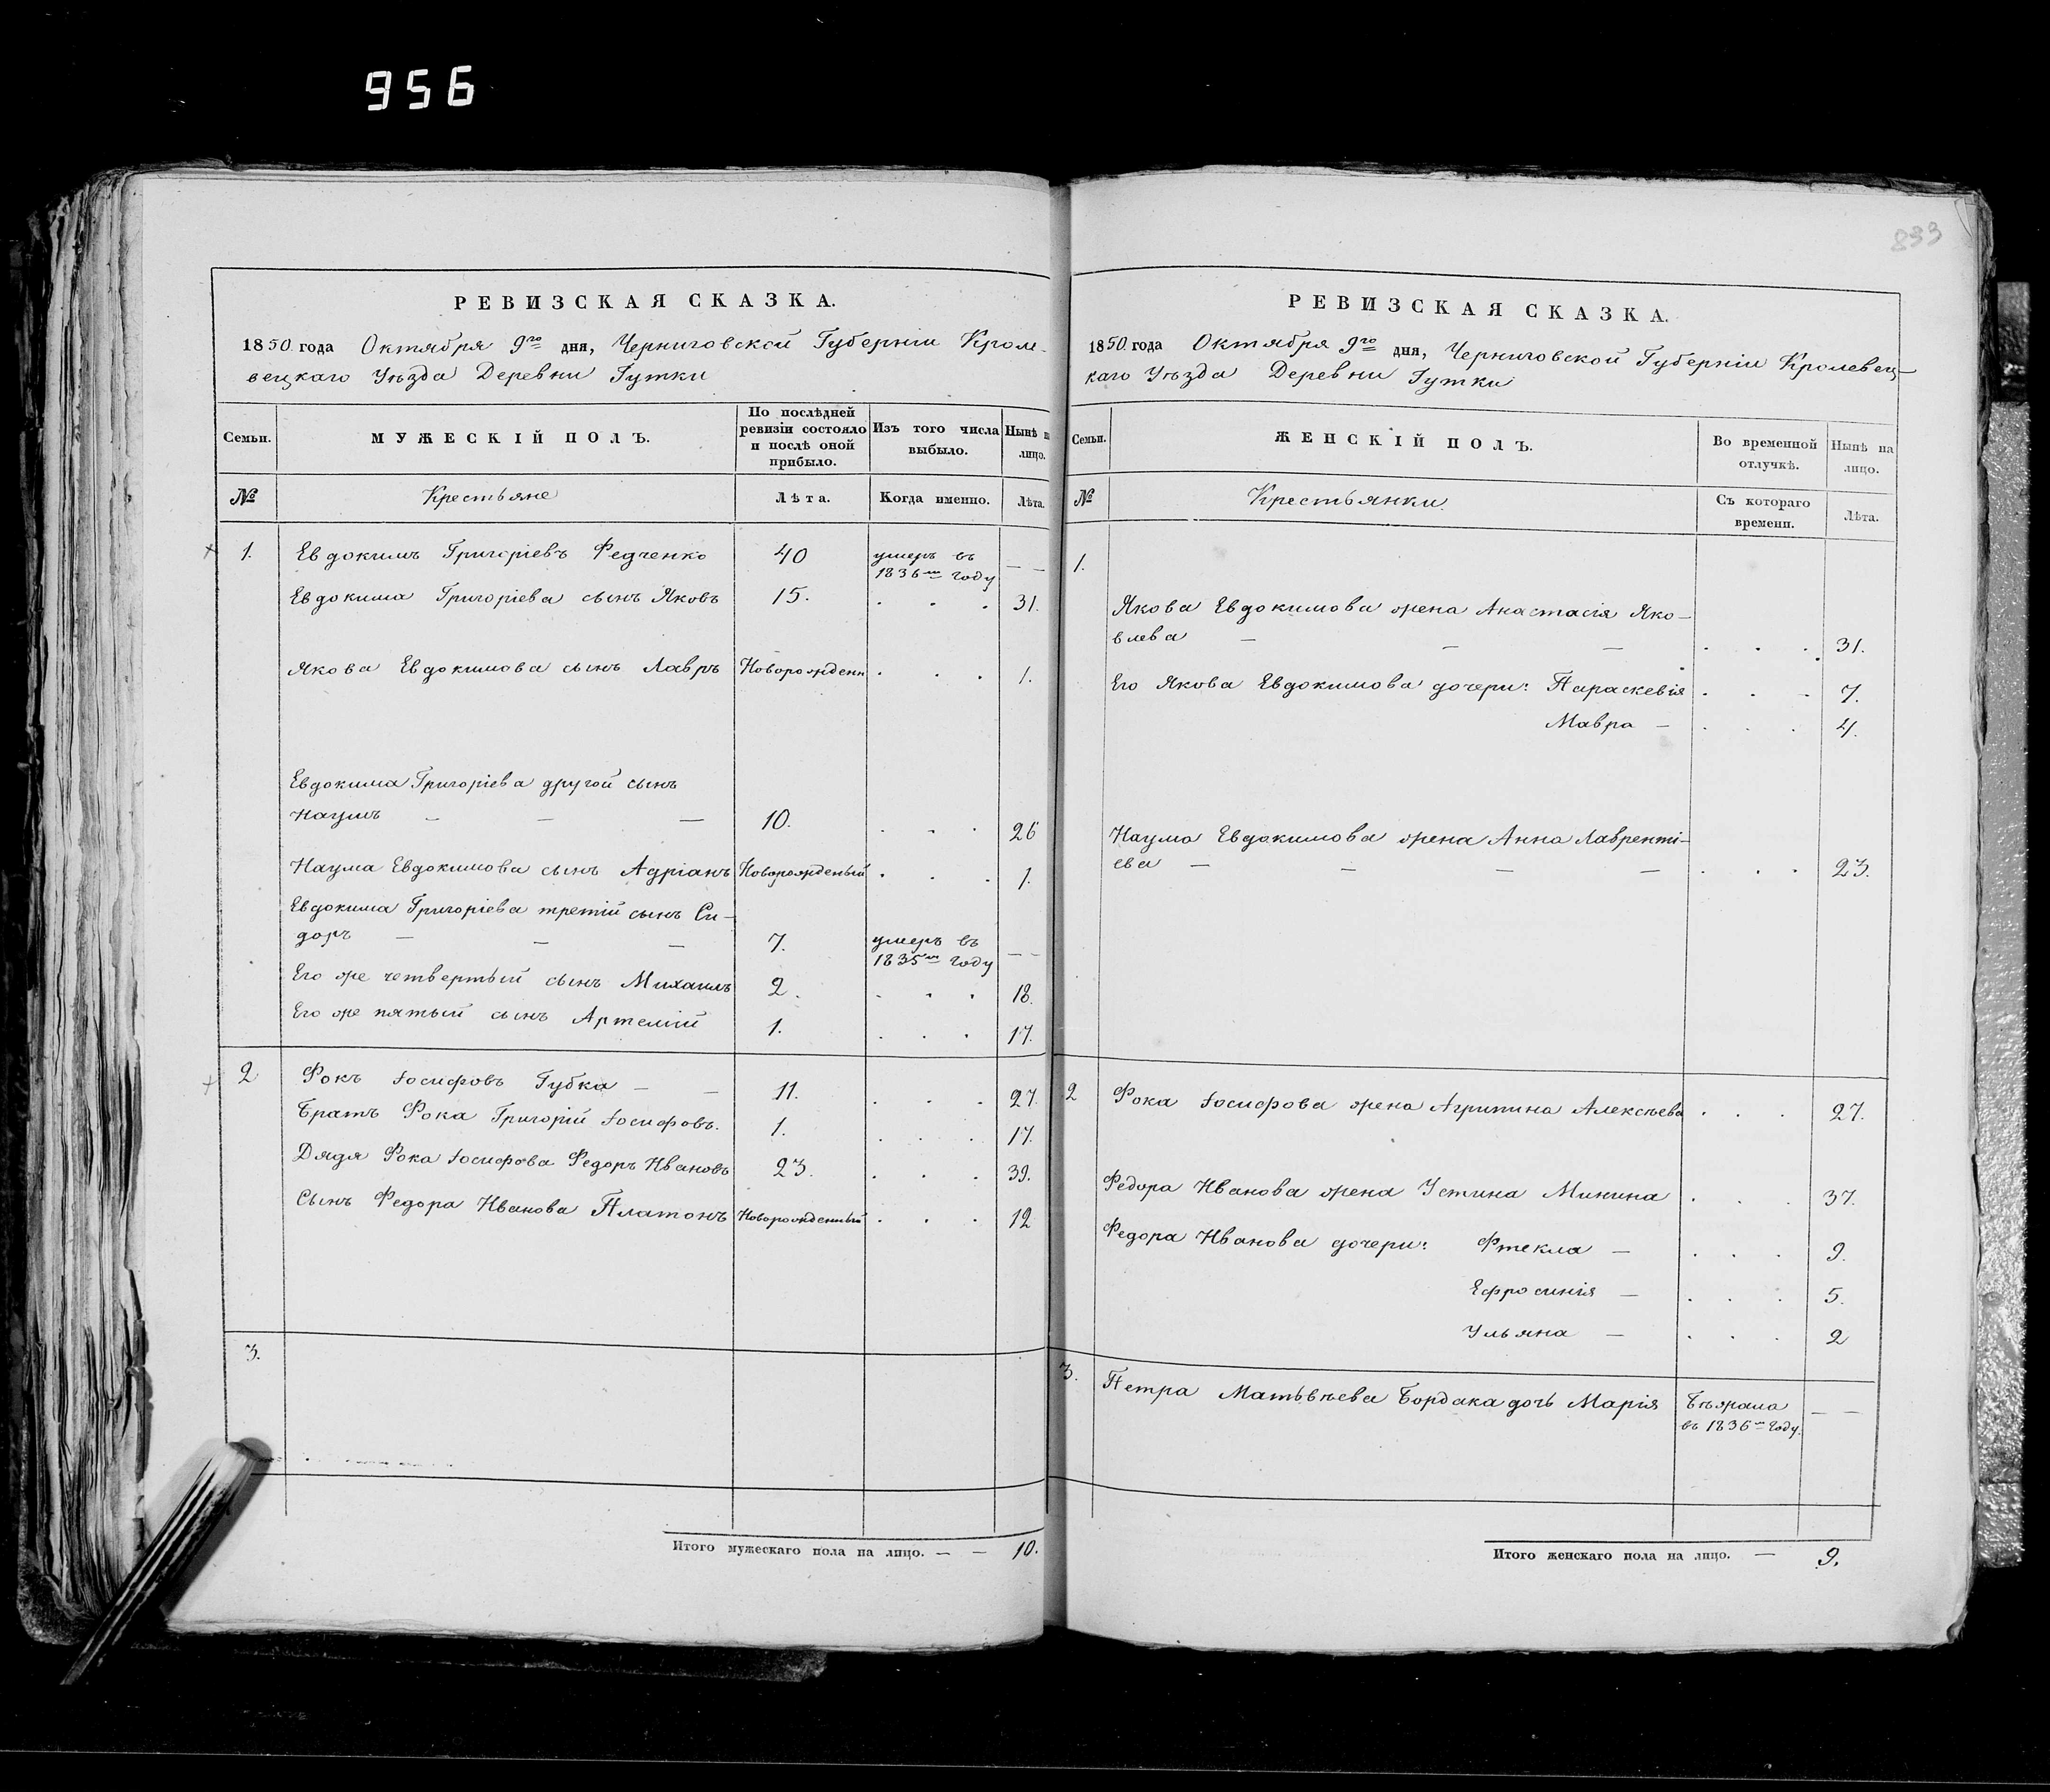 956
833
РЕВИЗСКАЯ СКАЗКА.
1850 года Октября 9го дня, Черниговской Губерніи Кроле-
вецкаго Уѣзда Деревни Гутки
Семьи.
МУЖЕСКІЙ ПОЛЪ.
По послѣдней ревизіи состояло и послѣ оной прибыло.
Изъ того числа выбыло.
Нынѣ н лицо.
№
Крестьяне
Лѣта.
Когда именно.
Лѣта.
1. Евдокимъ Григоріевъ Федченко 40 умеръ въ — —
1836м году
Евдокима Григоріева сынъ Яковъ 15. . . . 31.
Якова Евдокимова сынъ Лавръ Новорожденн . . . 1.
Евдокима Григоріева другой сынъ
Наумъ — — — 10. . . . 26
Наума Евдокимова сынъ Адріанъ Новорожденый . . . 1.
Евдокима Григоріева третій сынъ Си-
доръ — — — 7. умеръ въ — —
1835м году
Его же четвертый сынъ Михаилъ 2. . . . 18.
Его же пятый сынъ Артемій 1. . . . 17.
2 Фокъ Іосифовъ Губка — — 11. . . . 27.
Братъ Фока Григорій Іосифовъ. 1. . . . 17.
Дядя Фока Іосифова Федоръ Ивановъ 23. . . . 39.
Сынъ Федора Иванова Платонъ Новорожденный . . . 12
3.
Итого мужескаго пола на лицо. — — 10.
РЕВИЗСКАЯ СКАЗКА.
1850 года Октября 9го дня, Черниговской Губерніи Кролевец-
каго Уѣзда Деревни Гутки
Семьи.
ЖЕНСКІЙ ПОЛЪ.
Во временной отлучкѣ.
Нынѣ на лицо.
№
Крестьянки.
Съ котораго времени.
Лѣта.
1.
Якова Евдокимова жена Анастасія Яко-
влева — — — . . . 31.
Его Якова Евдокимова дочери: Параскевія . . . 7.
Мавра — . . . 4.
Наума Евдокимова жена Анна Лавренті-
ева — — — — . . . 23.
2 Фока Іосифова жена Агрипина Алексѣева . . . 27.
Федора Иванова жена Устина Минина . . . 37.
Федора Иванова дочери: Фтекла — . . . 9.
Ефросинія — . . . 5.
Ульяна — . . . 2
3. Петра Матьвѣева Бордака дочь Марія Бѣжала — —
въ 1836м году.
Итого женскаго пола на лицо. — 9.